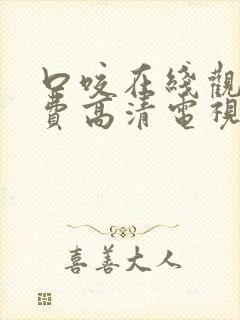 口咬在綫觀
費高清電視
喜善大人